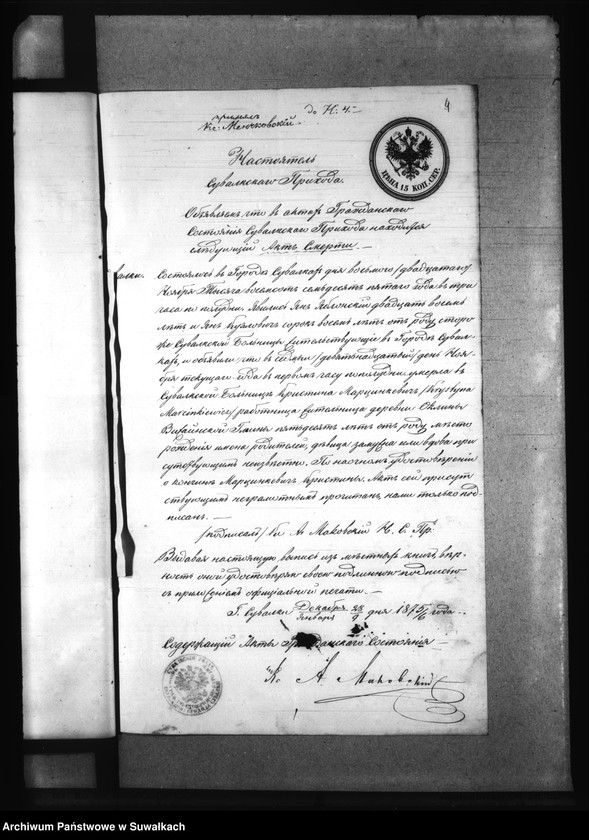 до Н: 4.
4
Кс: Мечковскій.
ЦѢНА 15 КОП. СЕР.
Настоятель
Сувалкского Прихода.
Объявляю что въ актахъ Гражданского
Состоянія Сувалкского Прихода находится
слѣдующій Актъ Смерти. —
Состоялось въ Городѣ Сувалкахъ дня восьмого /двадцатаго/
Ноября Тысяча восемсотъ семьдесятъ пятого года въ три
часа по полудни. Явились Янъ Яблонскій двадцать восемь
лѣтъ и Янъ сорокъ восемь лѣтъ отъ роду сторо-
же Сувалкской Больницы жительствующіе въ Городѣ Сувал-
кахъ, и объявили что въ седьмый /девятнадцатый/ день Ноя-
бря текущаго года въ первомъ часу пополудни умерла въ
Сувалкской Больницѣ Кристина Марцинкевичъ /Krystyna
Marcinkiewicz/ работница жительница деревни Оклины
Вижайнской Гмины пятьдесятъ лѣтъ отъ роду, мѣсто
рожденія имена родителей, дѣвица замужна или вдова при-
сутствующимъ неизвѣстно. По наочномъ удостовѣреніи
о кончинѣ Марцинкевичъ Кристины. Актъ сей присут-
ствующимъ неграмотнымъ прочитанъ, нами только под-
писанъ. —
/подписал/ Кс А. Маковскій Н. С. Пр.
Выдавая настоящую выпись изъ мѣстныхъ книгъ, вѣр-
ность оной удостовѣряю своею подлинною подписью
съ приложеніемъ оффиціальной печати. —
Г. Сувалки Декабря 28 дня 1875/6 года.
Января 9
Содержащій Акты Гражданскаго Состоянія
Кс А. Маковскій
Archiwum Państwowe w Suwałkach